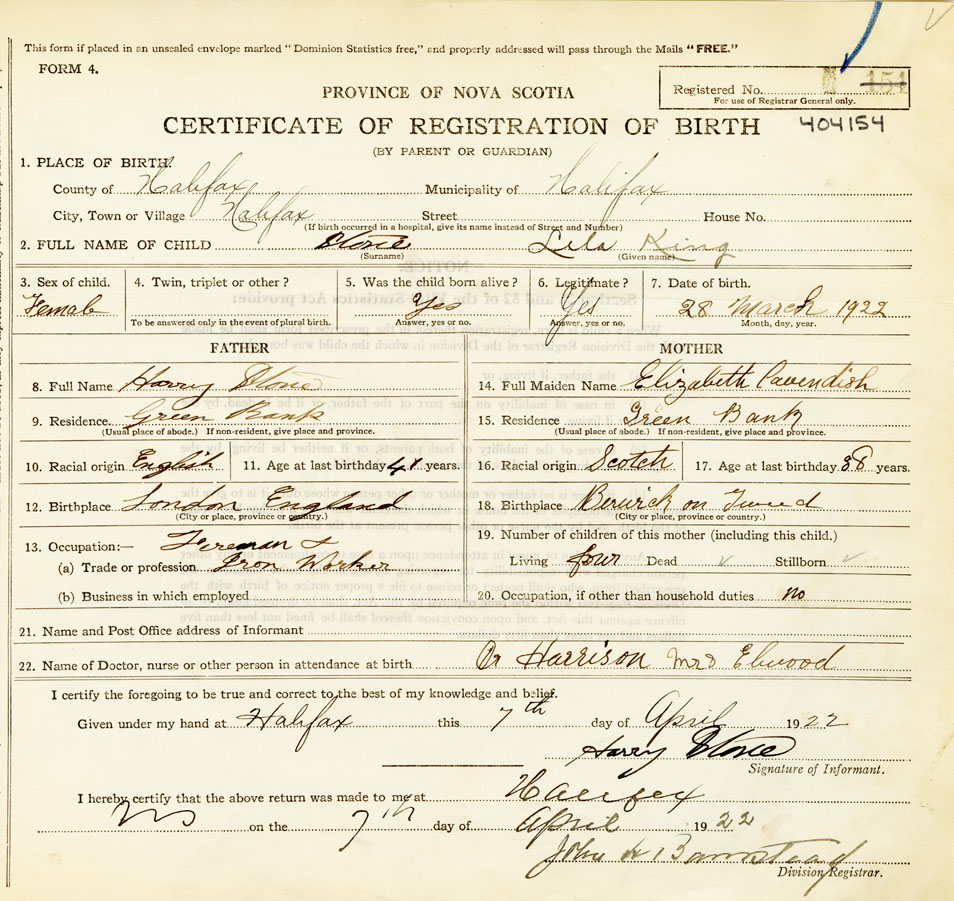 This form if placed in an unsealed envelope marked "Dominion Statistics free," and properly addressed will pass through the Mails "FREE."
FORM 4.
Registered No. 154
For use of Registrar General only.
PROVINCE OF NOVA SCOTIA
CERTIFICATE OF REGISTRATION OF BIRTH 404154
(BY PARENT OR GUARDIAN)
1. PLACE OF BIRTH:
County of Halifax Municipality of Halifax
City, Town or Village Halifax Street House No.
(If birth occurred in a hospital, give its name instead of Street and Number)
2. FULL NAME OF CHILD Stone Lela King
(Surname) (Given name)
3. Sex of child. 4. Twin, triplet or other? 5. Was the child born alive? 6. Legitimate? 7. Date of birth.
Female Yes Yes 28 March 1922
To be answered only in the event of plural birth. Answer, yes or no. Answer, yes or no. Month, day, year.
FATHER
8. Full Name Harry Stone
9. Residence Green Bank
(Usual place of abode.) If non-resident, give place and province.
10. Racial origin English 11. Age at last birthday 41 years.
12. Birthplace London England
(City or place, province or country.)
13. Occupation:— Foreman &
(a) Trade or profession Iron Worker
(b) Business in which employed
MOTHER
14. Full Maiden Name Elizabeth Cavendish
15. Residence Green Bank
(Usual place of abode.) If non-resident, give place and province.
16. Racial origin Scotch 17. Age at last birthday 38 years.
18. Birthplace Berwick on Tweed
(City or place, province or country.)
19. Number of children of this mother (including this child.)
Living four Dead ✓ Stillborn ✓
20. Occupation, if other than household duties no
21. Name and Post Office address of Informant
22. Name of Doctor, nurse or other person in attendance at birth Dr Harrison Mrs Elwood
I certify the foregoing to be true and correct to the best of my knowledge and belief.
Given under my hand at Halifax this 7th day of April 1922
Harry Stone
Signature of Informant.
I hereby certify that the above return was made to me at Halifax
NS on the 7th day of April 1922
John A Barnstead
Division Registrar.